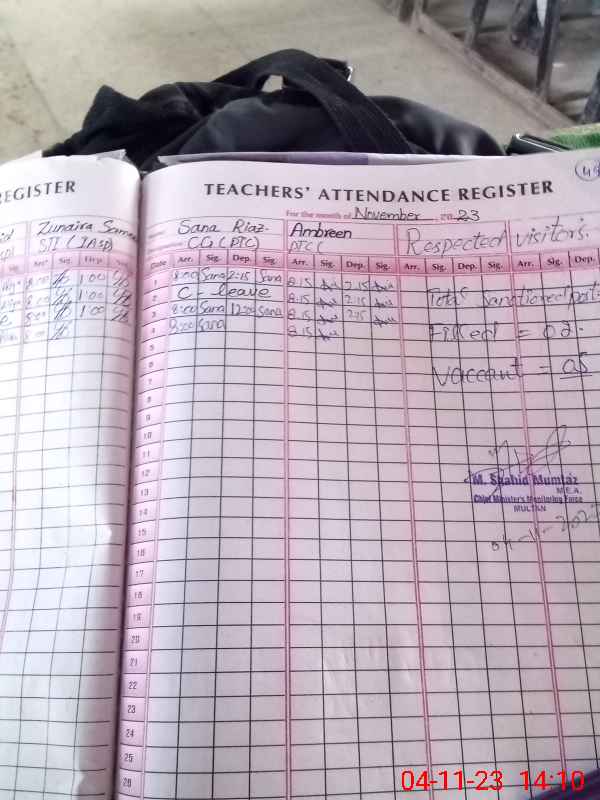 REGISTER
Zunaira
STI (IASP)
Arr. Sig. Dep.
8:00 1:00
8:00 1:00
8:00 1:00
8:00
TEACHERS' ATTENDANCE REGISTER
For the month of November 2023
Sana Riaz. Ambreen Respected visitors.
CG (PTC) PTC (
Date Arr. Sig. Dep. Sig. Arr. Sig. Dep. Sig. Arr. Sig. Dep. Sig. Arr. Sig. Dep.
1 8:00 Sana 2:15 Sana 8:15 2:15
2 C- leave 8:15 2:15 Total Sanctioned post
3 8:00 Sana 12:00 Sana 8:15 2:15
4 8:00 Sana 8:15 Filled = 02.
5
6
7 Vaccant = 05
8
9
10
11
12 M. Shahid Mumtaz
M.E.A.
13 Chief Minister's Monitoring Force
MULTAN
14
15 04-11-202
16
17
18
19
20
21
22
23
24
25
26
04-11-23 14:10